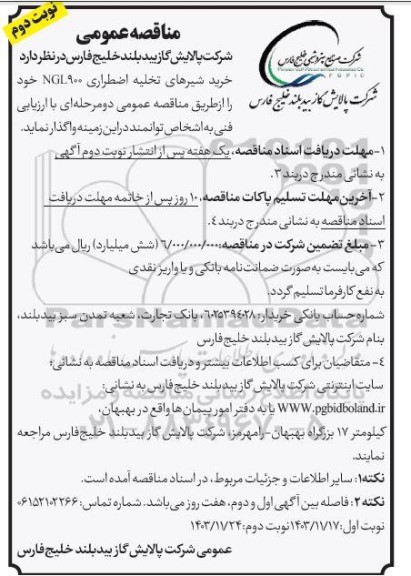 نوبت دوم
مناقصه عمومی
شرکت صنایع پتروشیمی خلیج فارس
PGPIC
شرکت پالایش گاز بیدبلند خلیج فارس
شرکت پالایش گاز بیدبلند خلیج فارس در نظر دارد
خرید شیرهای تخلیه اضطراری NGL۹۰۰ خود
را از طریق مناقصه عمومی دو مرحله‌ای با ارزیابی
فنی به اشخاص توانمند در این زمینه واگذار نماید.
۱-مهلت دریافت اسناد مناقصه، یک هفته پس از انتشار نوبت دوم آگهی
به نشانی مندرج در بند ۳.
۲-آخرین مهلت تسلیم پاکات مناقصه، ۱۰ روز پس از خاتمه مهلت دریافت
اسناد مناقصه به نشانی مندرج در بند ٤.
۳- مبلغ تضمین شرکت در مناقصه: ۶/۰۰۰/۰۰۰/۰۰۰ (شش میلیارد) ریال می‌باشد
که می‌بایست به صورت ضمانت‌نامه بانکی و یا واریز نقدی
به نفع کارفرما تسلیم گردد.
شماره حساب بانکی خریدار: ۶۰۲۵۳۹٤۰۲۸، بانک تجارت، شعبه تمدن سبز بیدبلند،
بنام شرکت پالایش گاز بیدبلند خلیج فارس
٤- متقاضیان برای کسب اطلاعات بیشتر و دریافت اسناد مناقصه به نشانی؛
سایت اینترنتی شرکت پالایش گاز بیدبلند خلیج فارس به نشانی:
WWW.pgbidboland.ir و یا به دفتر امور پیمان ها واقع در بهبهان،
کیلومتر ۱۷ بزرگراه بهبهان-رامهرمز، شرکت پالایش گاز بیدبلند خلیج فارس مراجعه
نمایند.
نکته۱: سایر اطلاعات و جزئیات مربوط، در اسناد مناقصه آمده است.
نکته ۲: فاصله بین آگهی اول و دوم، هفت روز می‌باشد. شماره تماس: ۰۶۱۵۲۱۰۲۲۶۶
نوبت اول: ۱٤۰۳/۱۱/۱۷ نوبت دوم: ۱٤۰۳/۱۱/۲٤
عمومی شرکت پالایش گاز بیدبلند خلیج فارس